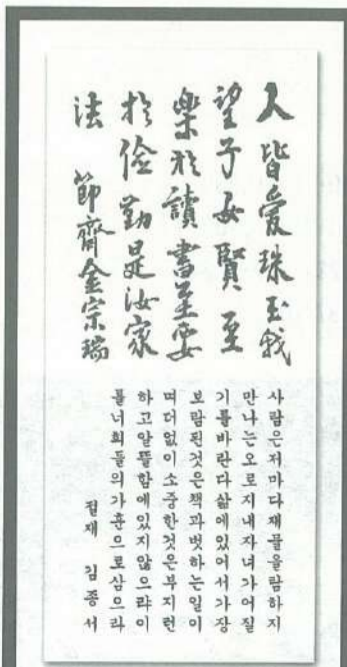 人皆愛珠玉我
望子女賢至
樂於讀書至要
於儉勤是汝家
法 節齊金宗瑞
사람은저마다재물을탐하지
만나는오로지내자녀가어질
기를바란다삶에있어서가장
보람된것은책과벗하는일이
며더없이소중한것은부지런
하고알뜰함에있지않으랴이
를너희들의가훈으로삼으라
절재 김종서